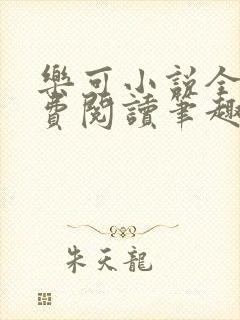 樂可小說全
費閱讀筆趣
朱天龍